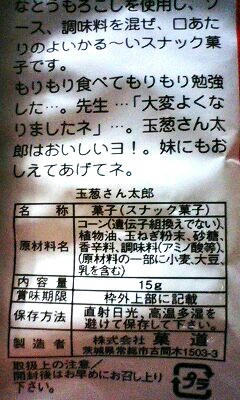 なとうもろこしを使用し、ソ
ース、調味料を混ぜ、口あた
りのよいかる〜いスナック菓
子です。
もりもり食べてもりもり勉強
した…。先生…「大変よくな
りましたネ」…。玉葱さん太
郎はおいしいヨ！。妹にもお
しえてあげてネ。
玉葱さん太郎
名称 菓子(スナック菓子)
原材料名 コーン(遺伝子組換えでない)、
植物油、玉ねぎ粉末、砂糖、
香辛料、調味料(アミノ酸等)
(原材料の一部に小麦、大豆、
乳を含む)
内容量 15g
賞味期限 枠外上部に記載
保存方法 直射日光、高温多湿を
避けて保存して下さい。
製造者 株式会社 菓道
茨城県常総市古間木1503-3
取扱上の注意/
開封後はお早めにお召し上が
り下さい。
プラ